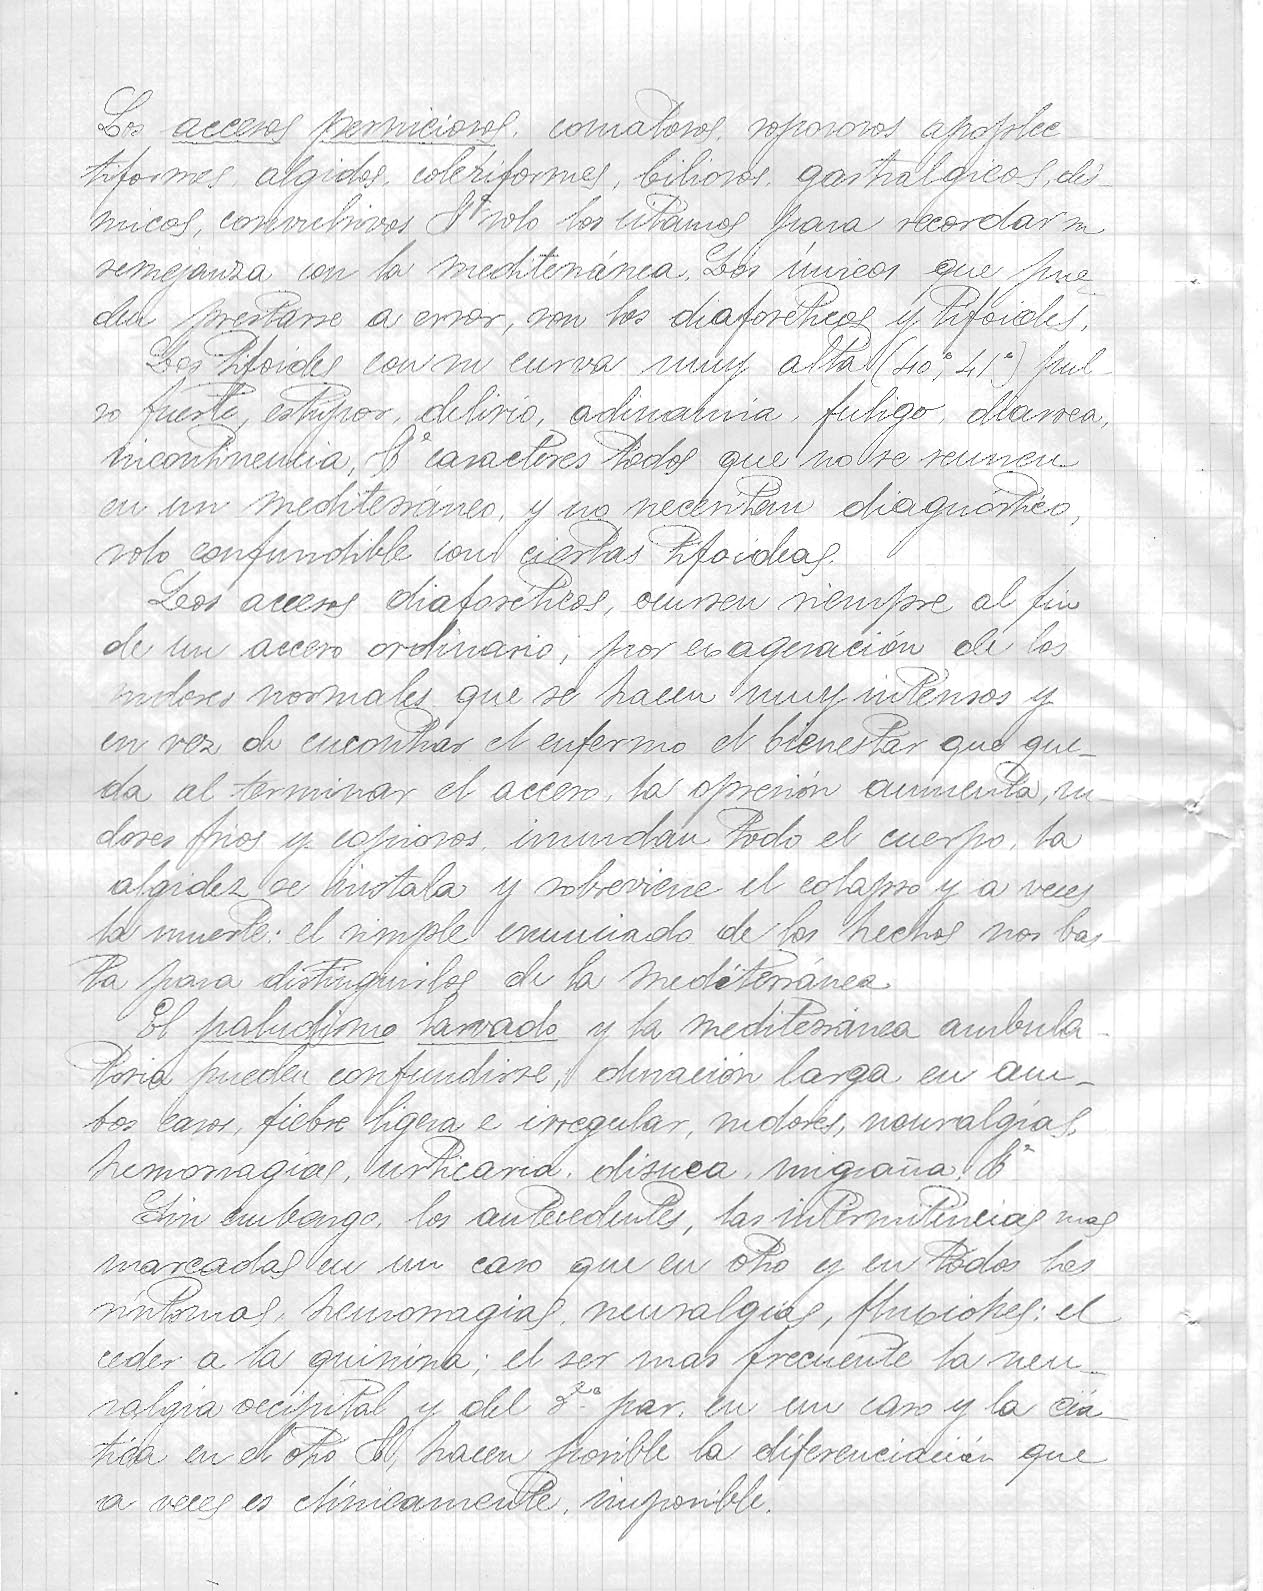 Los accesos perniciosos, comatosos, soporosos apoplec-
tiformes, algidos, coleriformes, biliosos, gastralgicos, dis-
nicos, convulsivos &ª solo los citamos para recordar su
semejanza con la mediterránea. Los únicos que pue-
den prestarse a error, son los diaforéticos y tifoides.
Los tifoides con su curva muy alta (40°, 41°) pul-
so fuerte, estupor, delirio, adinamia, fuligo, diarrea,
incontinencia, &ª caracteres todos que no se reunen
en un mediterráneo, y no necesitan diagnóstico,
solo confundible con ciertas tifoideas.
Los accesos diaforéticos, ocurren siempre al fin
de un acceso ordinario; por exageración de los
sudores normales que se hacen muy intensos y
en vez de encontrar el enfermo el bienestar que que-
da al terminar el acceso, la opresión aumenta, su-
dores frios y copiosos, inundan todo el cuerpo, la
algidez se instala y sobreviene el colapso y a veces
la muerte: el simple enunciado de los hechos nos bas-
ta para distinguirlos de la mediterránea.
El paludismo larvado y la mediterránea ambula-
toria pueden confundirse, duración larga en am-
bos casos, fiebre ligera e irregular, sudores, neuralgias,
hemorragias, urticaria, disnea, migraña, &ª
Sin embargo, los antecedentes, las intermitencias mas
marcadas en un caso que en otro y en todos los
síntomas, hemorragias, neuralgias, fluxiones; el
ceder a la quinina; el ser mas frecuente la neu-
ralgia occipital y del 5º par, en un caso y la ciá-
tica en el otro &, hacen posible la diferenciación que
a veces es clínicamente, imposible.